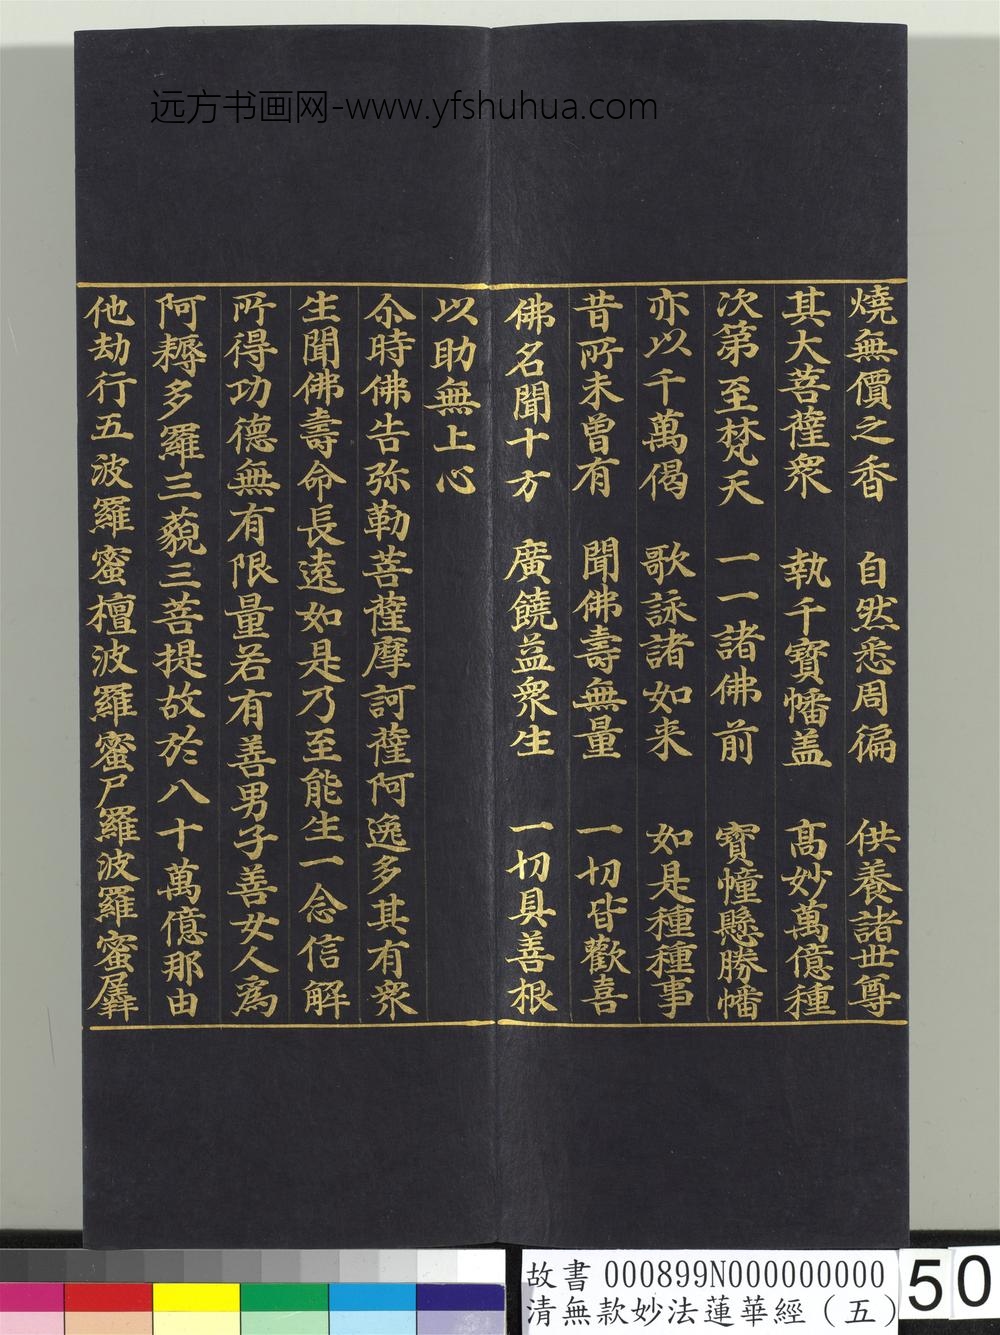 远方书画网-www.yfshuhua.com
燒無價之香 自然悉周徧 供養諸世尊
其大菩薩眾 執千寶幡蓋 高妙萬億種
次第至梵天 一一諸佛前 寶幢懸勝幡
亦以千萬偈 歌詠諸如来 如是種種事
昔所未曾有 聞佛壽無量 一切皆歡喜
佛名聞十方 廣饒益眾生 一切具善根
以助無上心
尒時佛告弥勒菩薩摩訶薩阿逸多其有眾
生聞佛壽命長遠如是乃至能生一念信解
所得功德無有限量若有善男子善女人為
阿耨多羅三藐三菩提故於八十萬億那由
他劫行五波羅蜜檀波羅蜜尸羅波羅蜜羼
故書 000899N000000000
清無款妙法蓮華經（五）
50